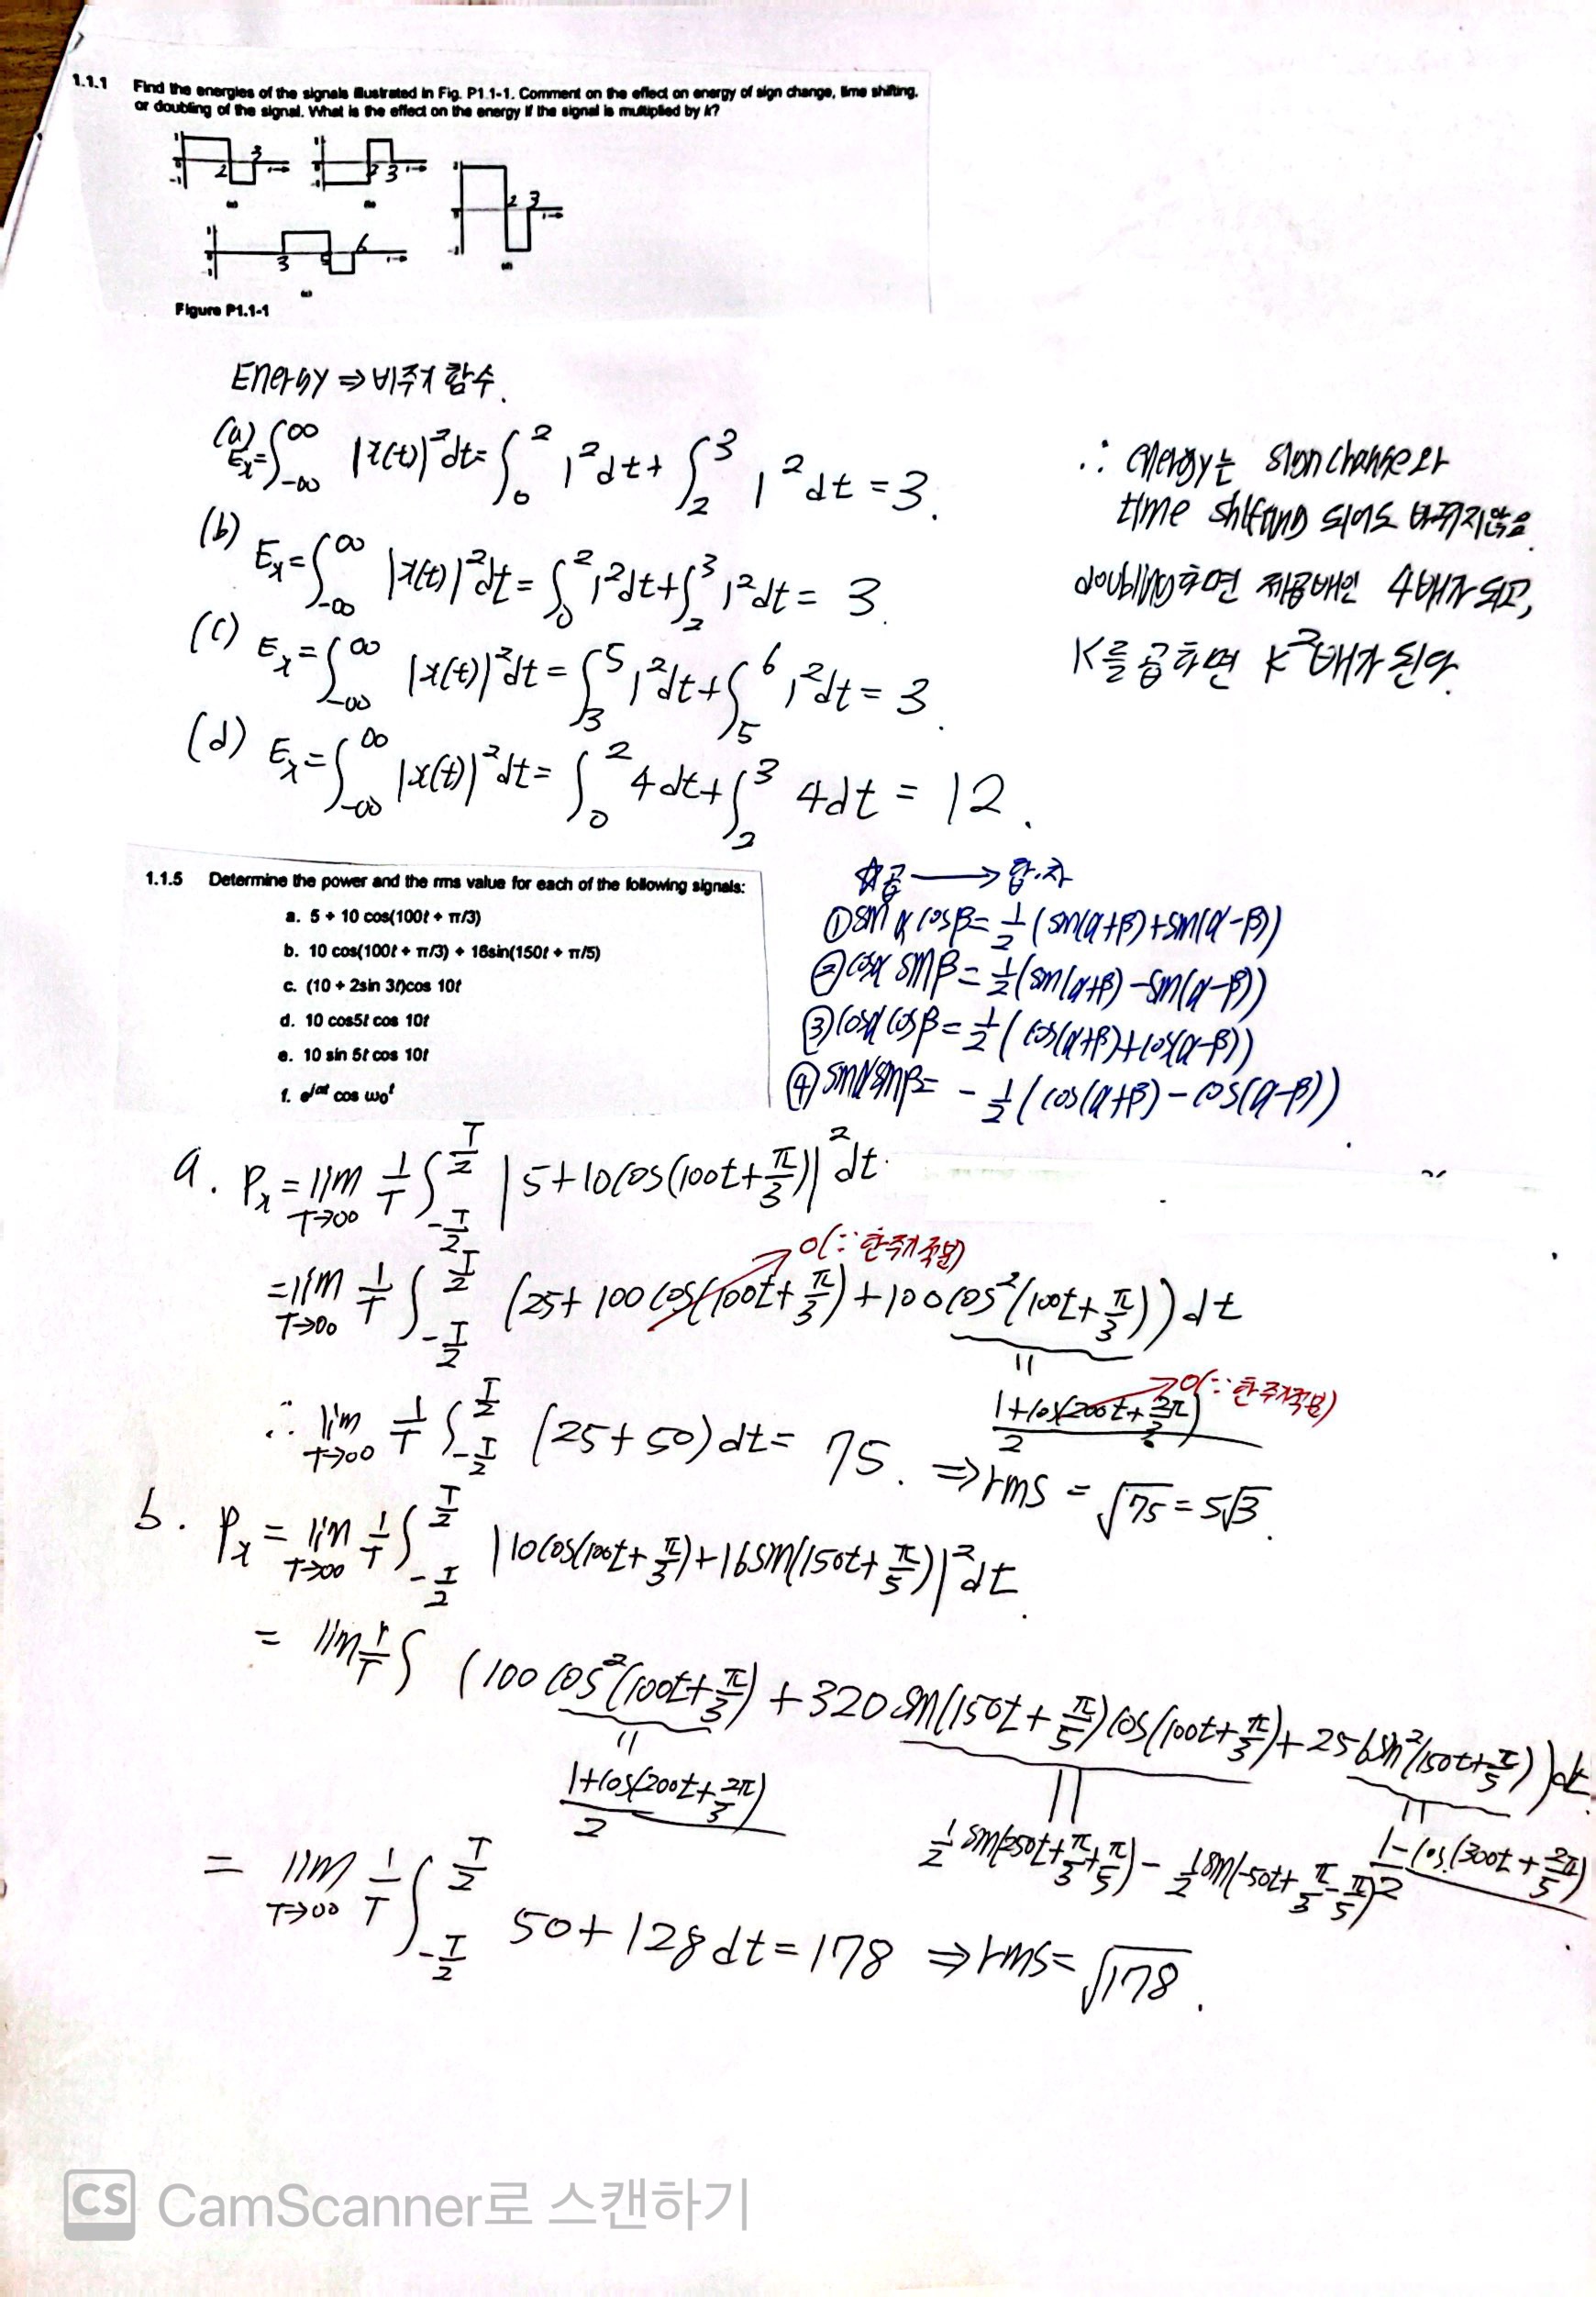 1.1.1 Find the energies of the signals illustrated in Fig. P1.1-1. Comment on the effect on energy of sign change, time shifting,
or doubling of the signal. What is the effect on the energy if the signal is multiplied by k?
2 3
2 3
2 3
3 5 6
Figure P1.1-1
Energy ⇒ 비주기 함수.
(a) Ex=∫_{-∞}^{∞} |x(t)|²dt= ∫_0^2 1²dt+ ∫_2^3 1²dt = 3.
(b) Ex=∫_{-∞}^{∞} |x(t)|²dt= ∫_0^2 1²dt+∫_2^3 1²dt= 3.
(c) Ex=∫_{-∞}^{∞} |x(t)|²dt= ∫_3^5 1²dt+∫_5^6 1²dt= 3.
(d) Ex=∫_{-∞}^{∞} |x(t)|²dt= ∫_0^2 4dt+∫_2^3 4dt = 12.
∴ energy는 sign change와
time shifting 되어도 바뀌지않음.
doubling하면 제곱배인 4배가 되고,
K를 곱하면 K²배가 된다.
1.1.5 Determine the power and the rms value for each of the following signals:
a. 5 + 10 cos(100t + π/3)
b. 10 cos(100t + π/3) + 16sin(150t + π/5)
c. (10 + 2sin 3t)cos 10t
d. 10 cos5t cos 10t
e. 10 sin 5t cos 10t
f. e^{jαt} cos ω₀t
☆곱 → 합·차
① sinα cosβ= 1/2 (sin(α+β)+sin(α-β))
② cosα sinβ= 1/2 (sin(α+β)-sin(α-β))
③ cosα cosβ= 1/2 (cos(α+β)+cos(α-β))
④ sinα sinβ= - 1/2 (cos(α+β)-cos(α-β))
a. Px= lim_{T→∞} 1/T ∫_{-T/2}^{T/2} |5+10cos(100t+π/3)|²dt.
0(∵한주기적분)
= lim_{T→∞} 1/T ∫_{-T/2}^{T/2} (25+100cos(100t+π/3)+100cos²(100t+π/3))dt
0(∵한주기적분)
(1+cos(200t+2π/3))/2
∴ lim_{T→∞} 1/T ∫_{-T/2}^{T/2} (25+50)dt= 75. ⇒ rms = √75 = 5√3.
b. Px= lim_{T→∞} 1/T ∫_{-T/2}^{T/2} |10cos(100t+π/3)+16sin(150t+π/5)|²dt.
= lim 1/T ∫ (100cos²(100t+π/3)+320sin(150t+π/5)cos(100t+π/3)+256sin²(150t+π/5))dt.
(1+cos(200t+2π/3))/2
1/2 sin(250t+π/3+π/5) - 1/2 sin(-50t+π/3-π/5)
(1-cos(300t+2π/5))/2
= lim_{T→∞} 1/T ∫_{-T/2}^{T/2} 50+128dt=178 ⇒ rms= √178.
CS CamScanner로 스캔하기